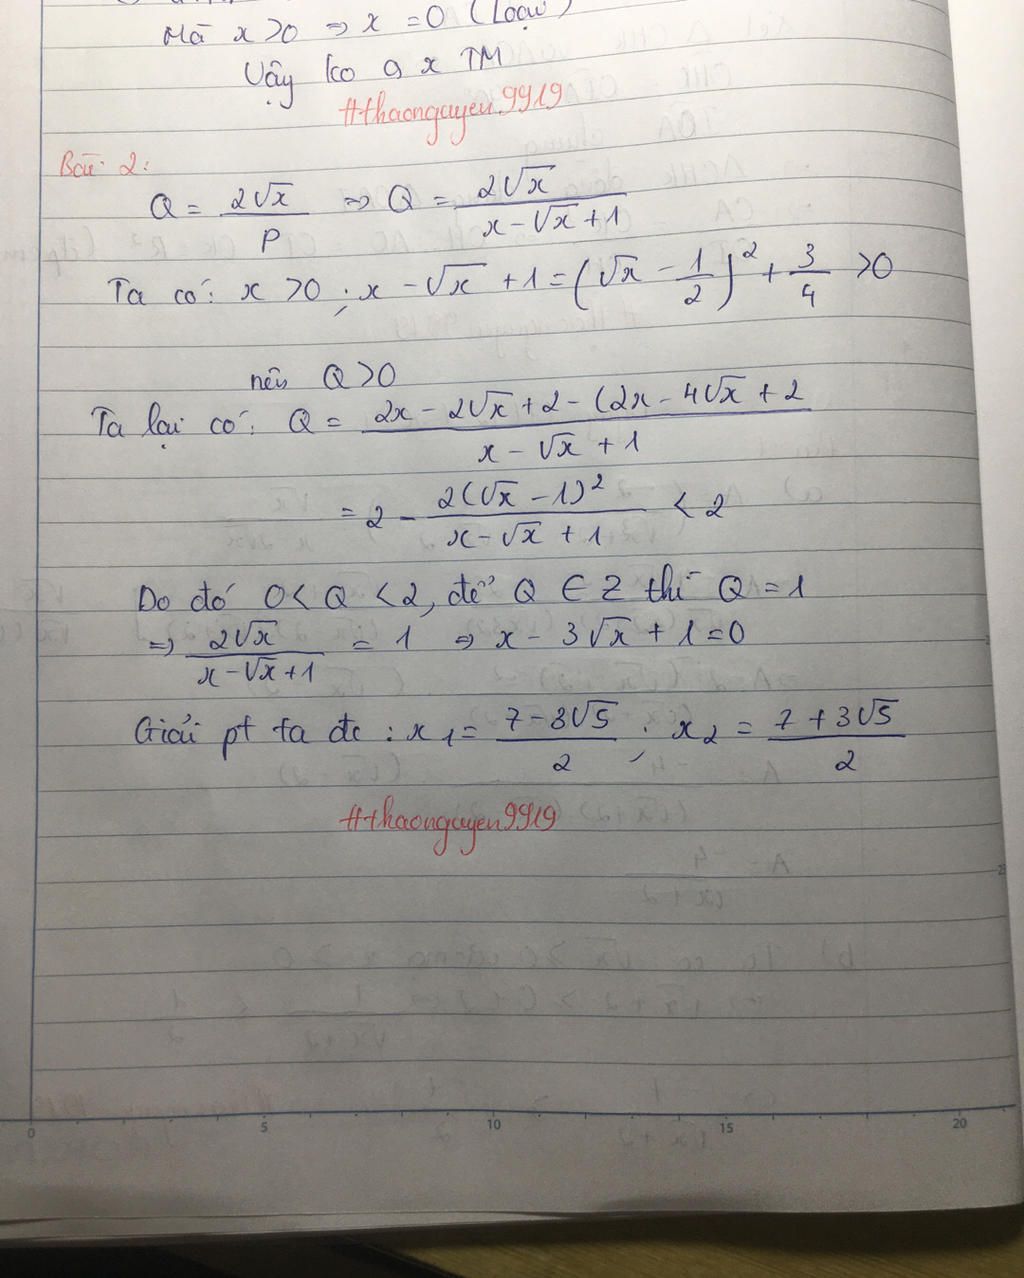 Mà x > 0 => x = 0 (Loại)
Vậy ko có x TM
#thaonguyen9919
Bài 2:
Q = 2√x / P => Q = 2√x / (x - √x + 1)
Ta có: x > 0 ; x - √x + 1 = (√x - 1/2)² + 3/4 > 0
nên Q > 0
Ta lại có: Q = 2x - 2√x + 2 - (2x - 4√x + 2 / x - √x + 1
= 2 - 2(√x - 1)² / (x - √x + 1) < 2
Do đó 0 < Q < 2, để Q ∈ Z thì Q = 1
=> 2√x / (x - √x + 1) = 1 => x - 3√x + 1 = 0
Giải pt ta đc : x₁ = (7 - 3√5) / 2 ; x₂ = (7 + 3√5) / 2
#thaonguyen9919
0 5 10 15 20